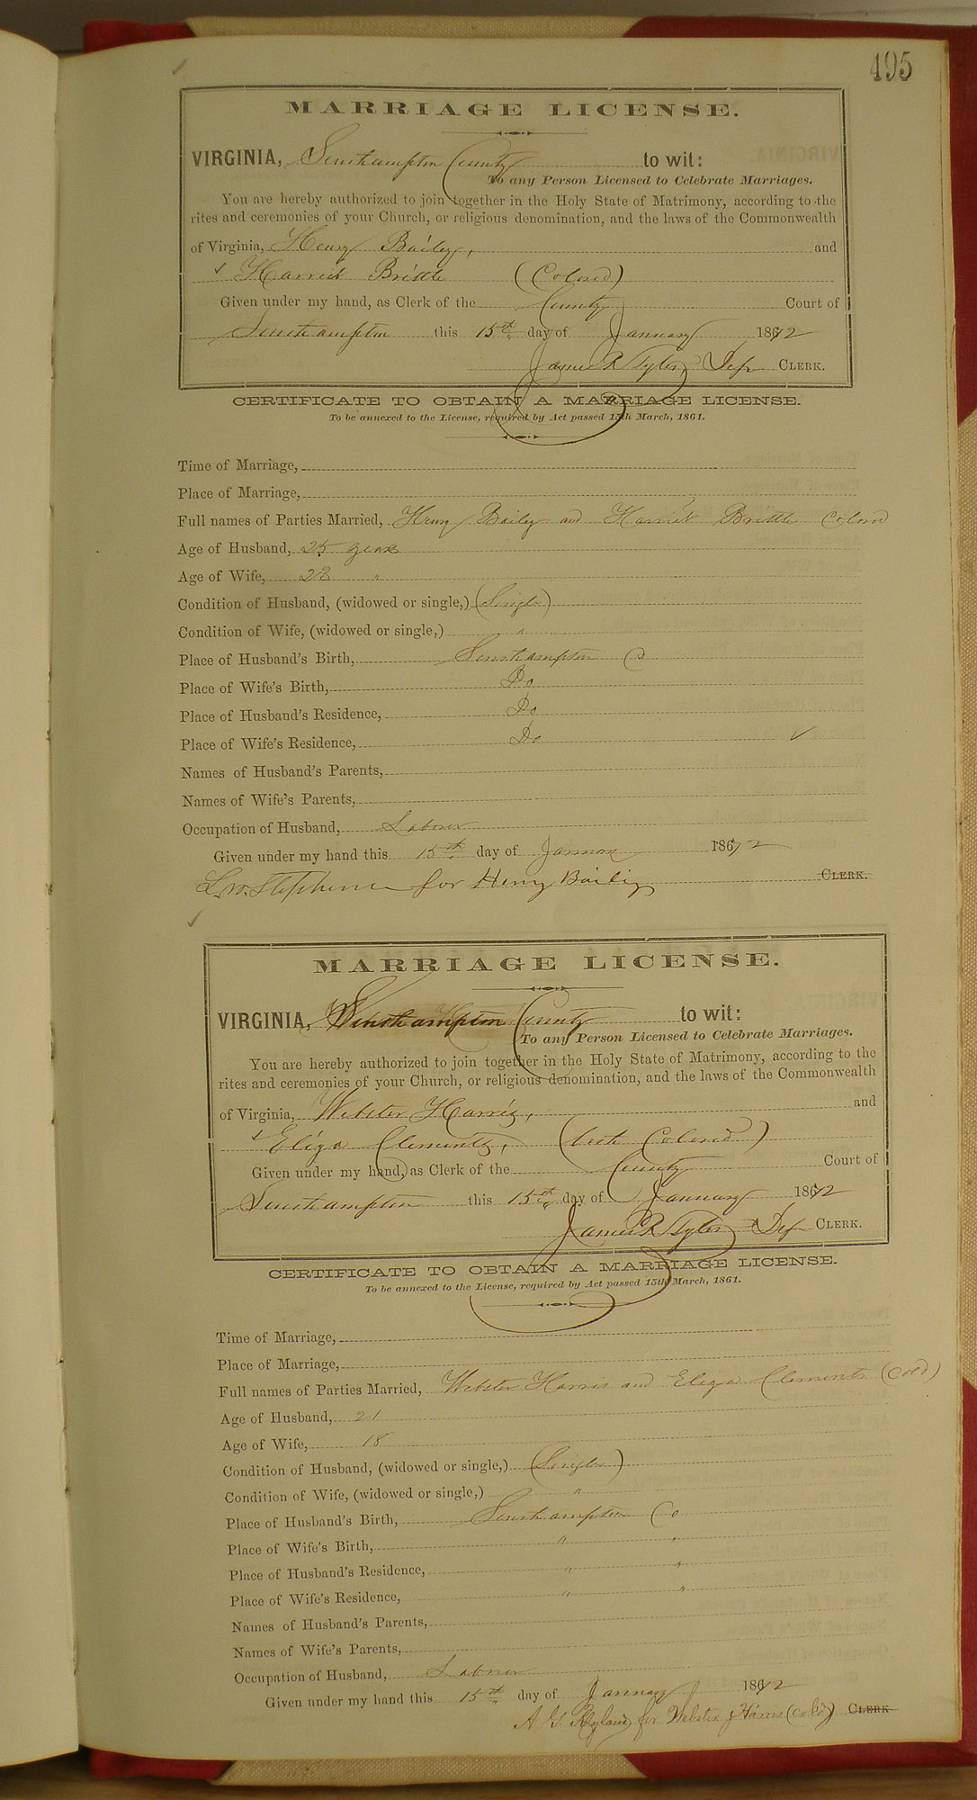 495
MARRIAGE LICENSE.
VIRGINIA, Southampton County to wit:
To any Person Licensed to Celebrate Marriages.
You are hereby authorized to join together in the Holy State of Matrimony, according to the
rites and ceremonies of your Church, or religious denomination, and the laws of the Commonwealth
of Virginia, Henry Bailey, and
Harriet Brittle (Colored)
Given under my hand, as Clerk of the County Court of
Southampton this 15th day of January 1872
James R Tyler Dep CLERK.
CERTIFICATE TO OBTAIN A MARRIAGE LICENSE.
To be annexed to the License, required by Act passed 15th March, 1861.
Time of Marriage,
Place of Marriage,
Full names of Parties Married, Henry Bailey and Harriet Brittle Colored
Age of Husband, 25 years
Age of Wife, 28 "
Condition of Husband, (widowed or single,) (Single)
Condition of Wife, (widowed or single,) "
Place of Husband's Birth, Southampton Co
Place of Wife's Birth, Do
Place of Husband's Residence, Do
Place of Wife's Residence, Do
Names of Husband's Parents,
Names of Wife's Parents,
Occupation of Husband, Laborer
Given under my hand this 15th day of January 1872
Stephenson for Henry Bailey CLERK.
MARRIAGE LICENSE.
VIRGINIA, Southampton County to wit:
To any Person Licensed to Celebrate Marriages.
You are hereby authorized to join together in the Holy State of Matrimony, according to the
rites and ceremonies of your Church, or religious denomination, and the laws of the Commonwealth
of Virginia, Webster Harris, and
Eliza Clements, (both Colored)
Given under my hand, as Clerk of the County Court of
Southampton this 15th day of January 1872
James R Tyler Dep CLERK.
CERTIFICATE TO OBTAIN A MARRIAGE LICENSE.
To be annexed to the License, required by Act passed 15th March, 1861.
Time of Marriage,
Place of Marriage,
Full names of Parties Married, Webster Harris and Eliza Clements (Cold)
Age of Husband, 21
Age of Wife, 18
Condition of Husband, (widowed or single,) (Single)
Condition of Wife, (widowed or single,) "
Place of Husband's Birth, Southampton Co
Place of Wife's Birth, " "
Place of Husband's Residence, " "
Place of Wife's Residence, " "
Names of Husband's Parents,
Names of Wife's Parents,
Occupation of Husband, Laborer
Given under my hand this 15th day of January 1872
for Webster Harris (cold) CLERK